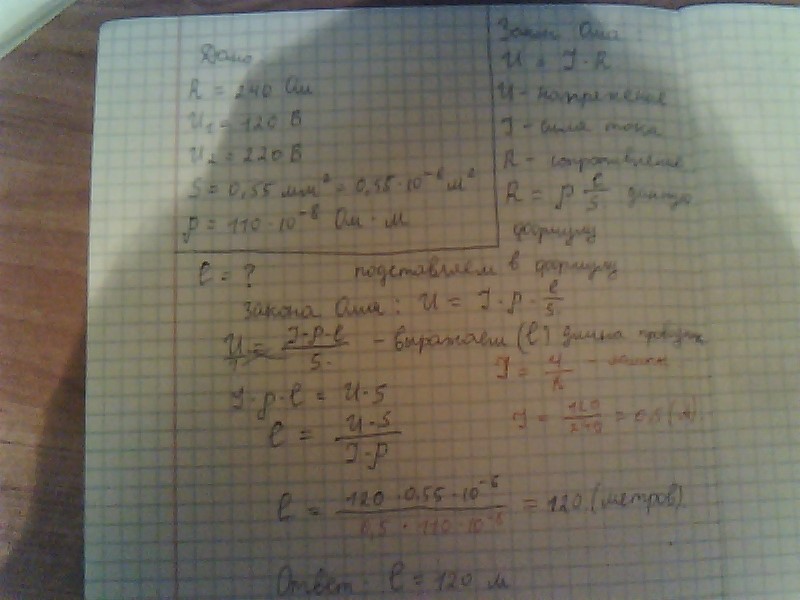 Дано
R = 240 Ом
U₁ = 120 В
U₂ = 220 В
S = 0,55 мм² = 0,55·10⁻⁶ м²
ρ = 110·10⁻⁸ Ом·м
l = ?
Закон Ома:
U = I·R
U - напряжение
I - сила тока
R - сопротивление
R = ρ l/S данную
формулу
подставляем в формулу
закона Ома: U = I·ρ·l/S
U = I·ρ·l/S - выражаем (l) длина
I·ρ·l = U·S
l = U·S/I·ρ
I = U/R
I = 120/240 = 0,5 (А)
l = 120·0,55·10⁻⁶/0,5·110·10⁻⁸ = 120 (метров)
Ответ: l = 120 м